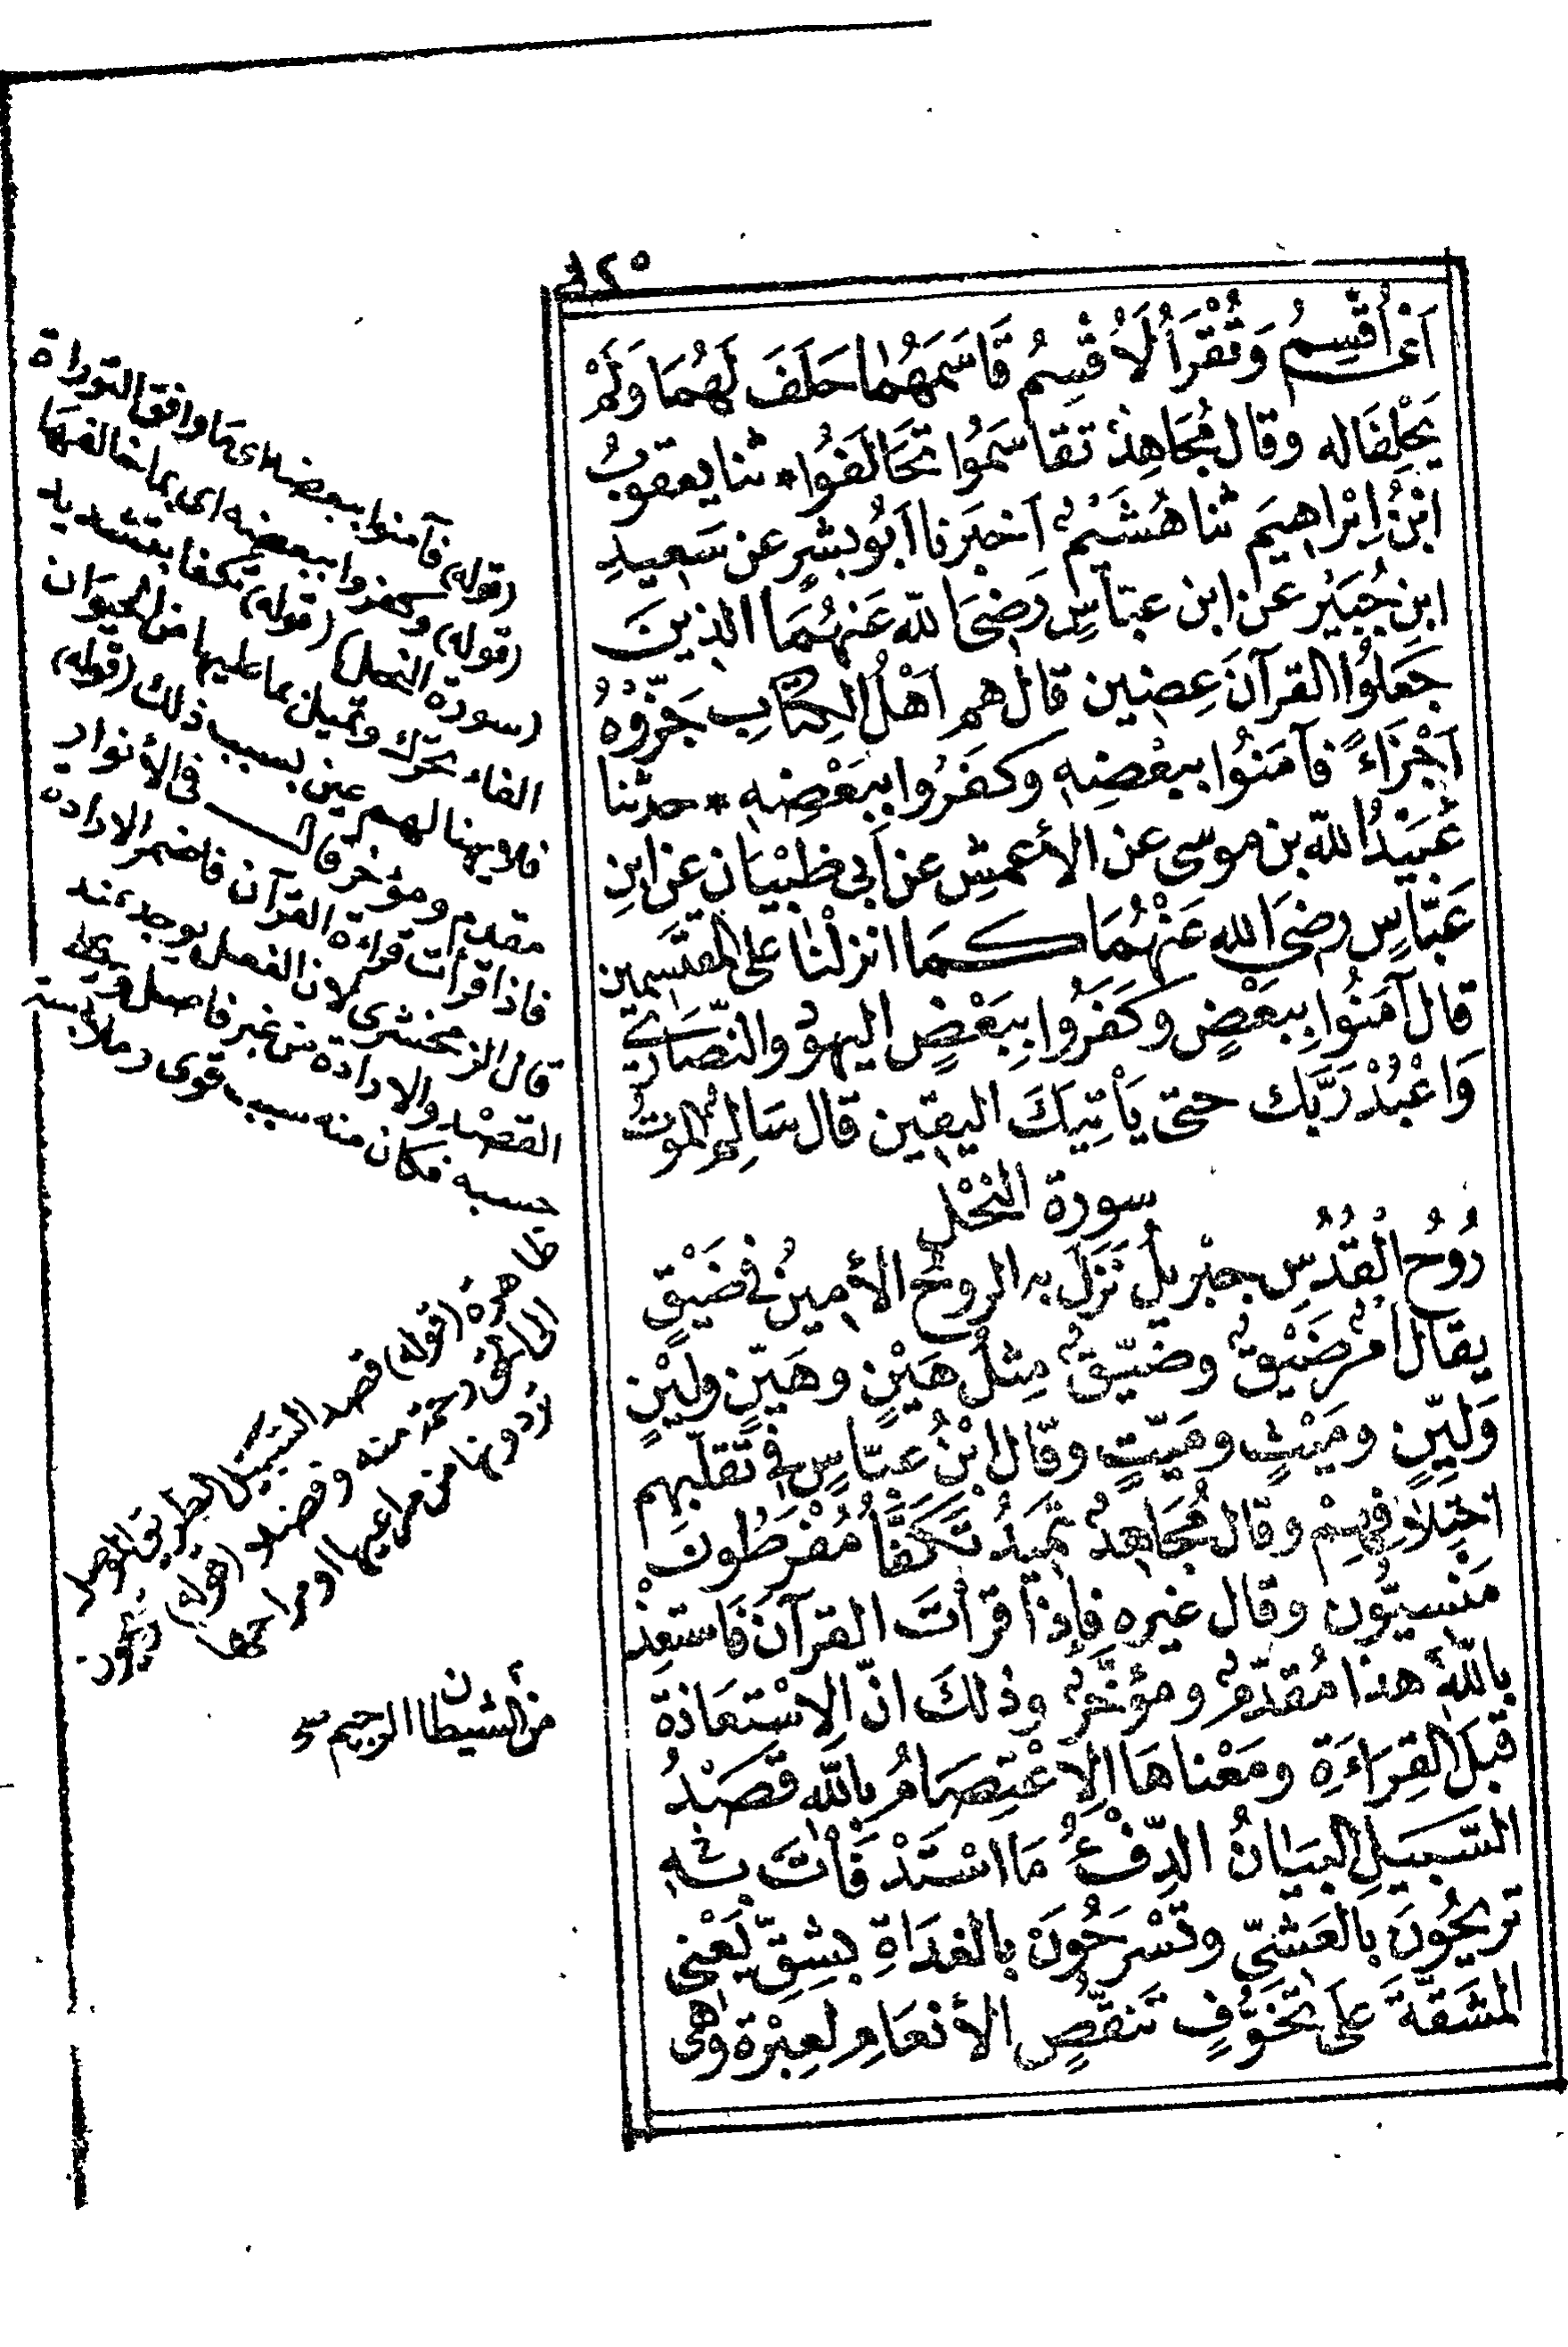 اَىْ اُقْسِمُ وَتُقْرَأُ لَاُقْسِمُ قَاسَمَهُمَا حَلَفَ لَهُمَا وَلَمْ
يَحْلِفَا له وقال مُجَاهِدٌ تَقَاسَمُوا تَحَالَفُوا * ثنا يعقوبُ
ابْنُ اِبْراهِيمَ ثنا هُشَيْمٌ اَخبَرَنا اَبُو بِشْرٍ عن سَعِيدِ
ابنِ جُبَيْرٍ عن ابن عبّاسٍ رَضِىَ الله عَنهُمَا الذِينَ
جَعَلُوا القرآنَ عِضِين قال هم اَهْلُ الكِتَابِ جَزَّؤُهُ
اَجْزَاءً فآمَنُوا بِبعْضِهِ وكفَرُوا بِبَعْضِهِ * حدثنا
عُبَيْدُ الله بن موسى عن الأعمشِ عن اَبى ظَبْيَان عن ابنِ
عَبّاسٍ رضىَ الله عَنْهُمَا كمَا انزلْنَا على المقتَسِمين
قال آمَنُوا بِبَعْضٍ وَكَفَرُوا بِبَعْضٍ اليهودُ والنّصَارَى
وَاعْبُدْ رَبَّك حتى يَأتِيَكَ اليقين قال سَالِمٌ الموتُ
سورة النحْل
رُوُحُ القُدُسِ جبْريلُ نَزَلَ به الروحُ الأمِينُ فى ضَيْقٍ
يقال اَمْرٌ ضَيْقٌ وضَيّقٌ مِثلُ هَيْنٍ وهَيّنٍ ولَيْنٍ
وَلَيّنٍ ومَيْتٍ ومَيّتٍ وقال ابْنُ عبّاسٍ فى تَقلّبهم
اختِلَافِهِمْ وقال مُجَاهِدٌ تَمِيدُ تَكَفَّأُ مُفْرَطُونَ
مَنْسِيُّون وقال غيره فإذَا قرأتَ القرآنَ فَاستعِذْ
بالله هذا مُقدّمٌ ومؤخَّرٌ وذلكَ انّ الاِسْتعَاذةَ
قبلَ القِرَاءَةِ ومَعْناهَا الاِعْتِصَامُ بالله قصْدُ
السَّبيلِ البيَانُ الدِّفْءُ مَا اسْتَدْفَأْتَ به
تريحُونَ بالعَشِىّ وتَسْرَحُونَ بالغدَاةِ بشِقِّ يَعْنى
المَشَقَّةَ عَلَى تَخَوُّفٍ تَنقّصٍ الأنْعَامِ لَعِبْرَةً وهى
(قوله) فآمنوا ببعضه اى بما وافق التوراة
(قوله) وكفروا ببعضه اى بما خالفها
(سورة النحل) (قوله) تكفا بتشديد
الفاء تحرّك وتميل بما عليها من الحيوان
فلا يهنا لهم عين بسبب ذلك (قوله)
مقدم ومؤخر قال فى الأنوار
فاذا قرأت قراءة القرآن فاضمر الارادة
قال الزمخشرى لان الفعل يوجد عند
القصد والارادة من غير فاصل وعلى
حسبه فكان منه سبب قوى وملابسة
ظاهرة (قوله) قصد السبيل الطريق الموصل
الى الحق رحمة منه وفضلا (قوله) تريحون
تردونها من مراعيها الى مراحها
من الشيطان الرجيم